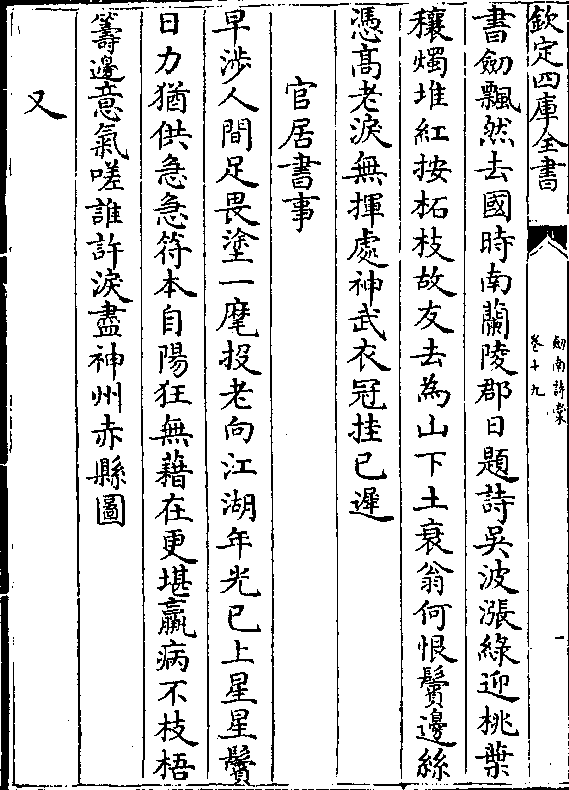 欽定四庫全書
劒南詩稾
卷十九
書劒飄然去國時南蘭陵郡日題詩吳波漲綠迎桃葉
穰燭堆紅按柘枝故友去為山下土衰翁何恨鬢邊絲
憑髙老淚無揮處神武衣冠挂已遲
官居書事
早涉人間足畏塗一麾投老向江湖年光已上星星鬢
日力猶供急急符本自陽狂無藉在更堪羸病不枝梧
籌邊意氣嗟誰許淚盡神州赤縣圖
又